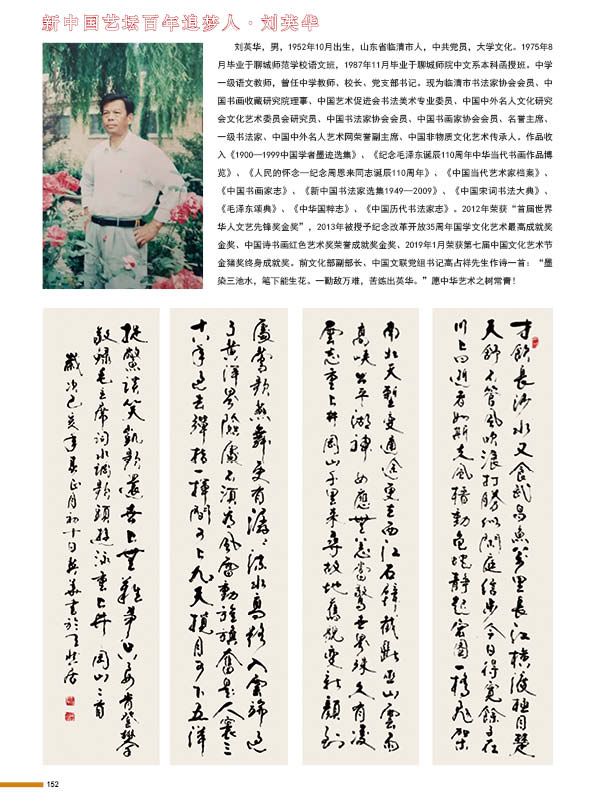 新中国艺坛百年追梦人·刘英华
刘英华，男，1952年10月出生，山东省临清市人，中共党员，大学文化。1975年8
月毕业于聊城师范学校语文班，1987年11月毕业于聊城师院中文系本科函授班。中学
一级语文教师，曾任中学教师、校长、党支部书记。现为临清市书法家协会会员、中
国书画收藏研究院理事、中国艺术促进会书法美术专业委员、中国中外名人文化研究
会文化艺术委员会研究员、中国书法家协会会员、中国书画家协会会员、名誉主席、
一级书法家、中国中外名人艺术网荣誉副主席、中国非物质文化艺术传承人。作品收
入《1900—1999中国学者墨迹选集》、《纪念毛泽东诞辰110周年中华当代书画作品博
览》、《人民的怀念—纪念周恩来同志诞辰110周年》、《中国当代艺术家档案》、
《中国书画家志》、《新中国书法家选集1949—2009》、《中国宋词书法大典》、
《毛泽东颂典》、《中华国粹志》、《中国历代书法家志》。2012年荣获“首届世界
华人文艺先锋奖金奖”，2013年被授予纪念改革开放35周年国学文化艺术最高成就奖
金奖、中国诗书画红色艺术奖荣誉成就奖金奖、2019年1月荣获第七届中国文化艺术节
金猪奖终身成就奖。前文化部副部长、中国文联党组书记高占祥先生作诗一首：“墨
染三池水，笔下能生花。一勤敌万难，苦炼出英华。”愿中华艺术之树常青！
才飲長沙水又食武昌魚萬里長江橫渡極目楚
天舒不管風吹浪打勝似閒庭信步今日得寬餘子在
川上曰逝者如斯夫風檣動龜蛇靜起宏圖一橋飛架
南北天塹變通途更立西江石壁截斷巫山雲雨
高峽出平湖神女應無恙當驚世界殊久有凌
雲志重上井岡山千里來尋故地舊貌變新顏到
處鶯歌燕舞更有潺潺流水高路入雲端過
了黃洋界險處不須看風雷動旌旗奮是人寰三
十八年過去彈指一揮間可上九天攬月可下五洋
捉鱉談笑凱歌還世上無難事只要肯登攀
敬錄毛主席詞水調歌頭游泳重上井岡山二首
歲次己亥年春正月初十日英華書於
152